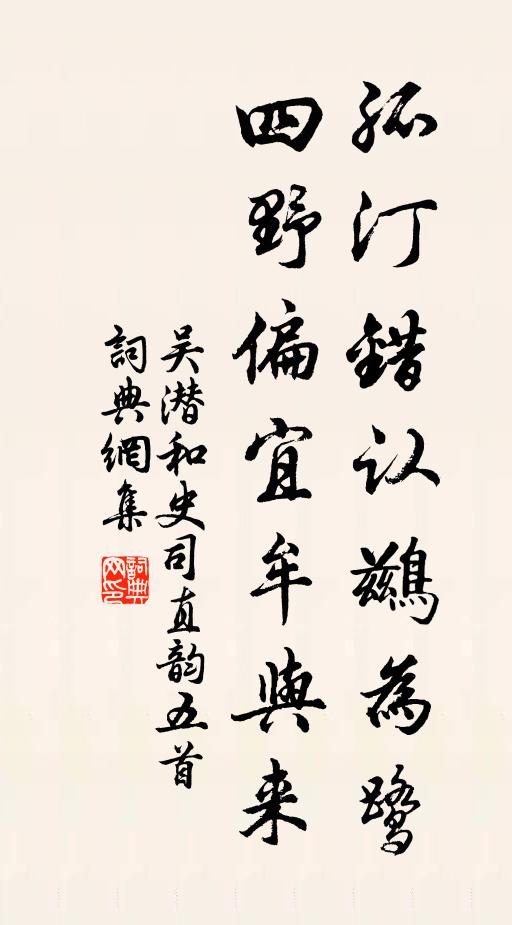 孤汀錯认鷀為鹭
四野偏宜牟與来
吴潜和史司直韵五首
詞典網集
詞典网印